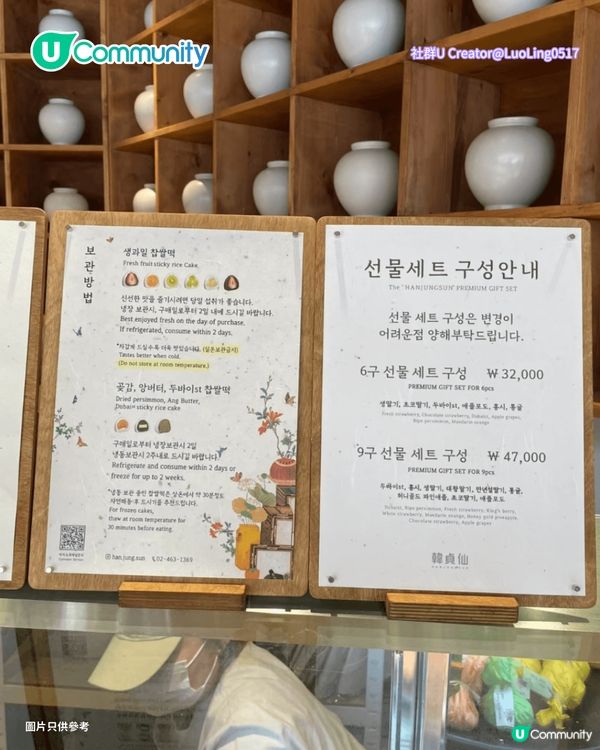 U Community
社群U Creator@LuoLing0517
보관방법
생과일 찹쌀떡
Fresh fruit sticky rice Cake
신선한 맛을 즐기시려면 당일 섭취가 좋습니다.
냉장 보관시, 구매일로부터 2일 내에 드시길 바랍니다.
Best enjoyed fresh on the day of purchase.
If refrigerated, consume within 2 days.
*차갑게 드실수록 더욱 맛있습니다. (실온보관금지)
Tastes better when cold.
(Do not store at room temperature.)
곶감, 앙버터, 두바이st 찹쌀떡
Dried persimmon, Ang Butter,
Dubai st sticky rice cake
구매일로부터 냉장보관시 2일
냉동보관시 2주내로 드시길 바랍니다.
Refrigerate and consume within 2 days or
freeze for up to 2 weeks.
*냉동 보관 중인 찹쌀떡은 상온에서 약 30분정도
자연해동 후 드시기를 추천드립니다.
For frozen cakes,
thaw at room temperature for
30 minutes before eating.
Customer Service
han.jung.sun 02-463-1369
선물세트 구성안내
The "HANJUNGSUN" PREMIUM GIFT SET
선물 세트 구성은 변경이
어려운점 양해부탁드립니다.
6구 선물 세트 구성 ₩ 32,000
PREMIUM GIFT SET FOR 6pcs
생딸기, 초코딸기, 두바이st, 애플포도, 홍시, 통귤
Fresh strawberry, Chocolate strawberry, Dubaist, Apple grape,
Ripe persimmon, Mandarin orange
9구 선물 세트 구성 ₩ 47,000
PREMIUM GIFT SET FOR 9pcs
두바이st, 홍시, 생딸기, 대왕딸기, 만년설딸기, 통귤,
허니골드 파인애플, 초코딸기, 애플포도
Dubaist, Ripe persimmon, Fresh strawberry, King's berry,
White strawberry, Mandarin orange, Honey gold pineapple,
Chocolate strawberry, Apple grape
韓貞仙
HANJUNGSUN
圖片只供參考
U Community